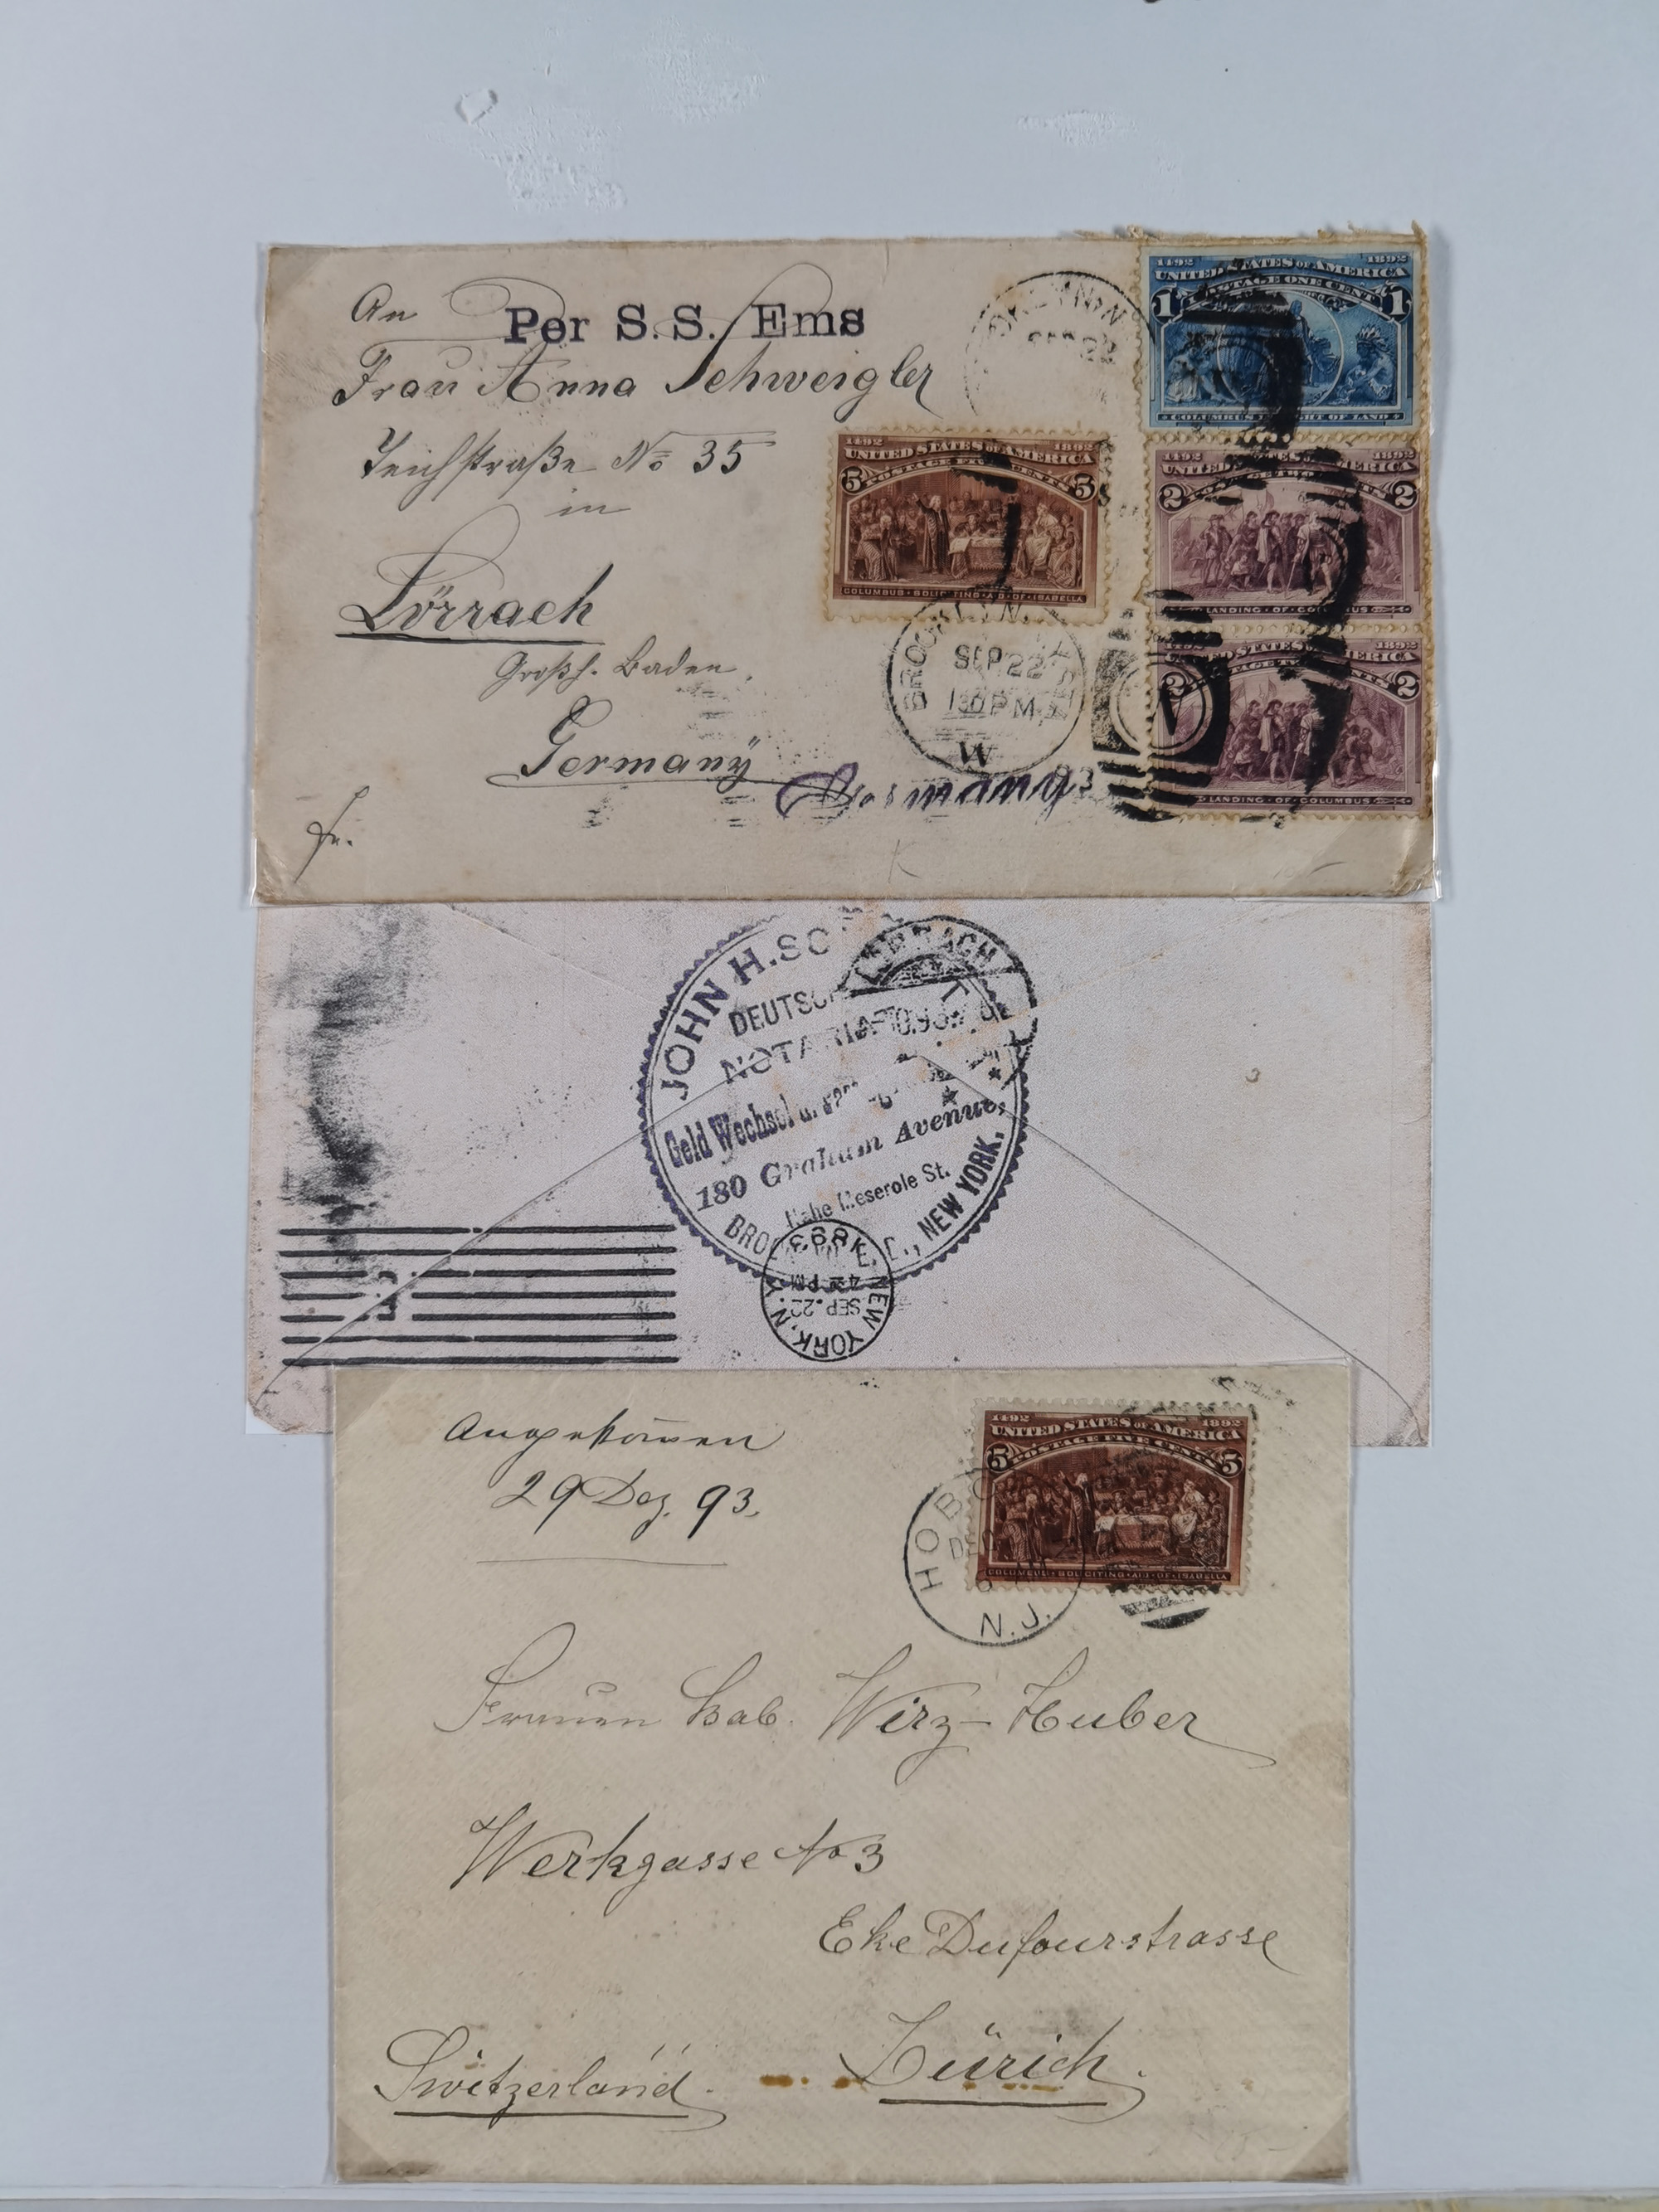 An
Per S.S. Ems
Frau Anna Schweigler
Teichstraße No 35
in
Lörrach
Großh. Baden.
Germany
Germany
fr.
1492 1892
UNITED STATES OF AMERICA
POSTAGE ONE CENT
1 1
COLUMBUS IN SIGHT OF LAND
1492 1892
UNITED STATES OF AMERICA
POSTAGE FIVE CENTS
5 5
COLUMBUS SOLICITING AID OF ISABELLA
1492 1892
UNITED STATES OF AMERICA
POSTAGE TWO CENTS
2 2
LANDING OF COLUMBUS
1892
UNITED STATES OF AMERICA
POSTAGE TWO CENTS
2 2
LANDING OF COLUMBUS
BROOKLYN, N.Y.
SEP 22
130 PM
93
W
K
JOHN H.
LÖRRACH
NOTARIAT
Geld Wechsel u.
180 Graham Avenue,
Nahe Meserole St.
E. D., NEW YORK.
NEW YORK, N.Y.
SEP. 22
PM
1893
Angekommen
29 Dez. 93.
1492 1892
UNITED STATES OF AMERICA
POSTAGE FIVE CENTS
5 5
COLUMBUS SOLICITING AID OF ISABELLA
HOBO
N.J.
Frauen Bab. Wirz-Huber
Werkgasse No 3
Eke Dufourstrasse
Zürich.
Switzerland.